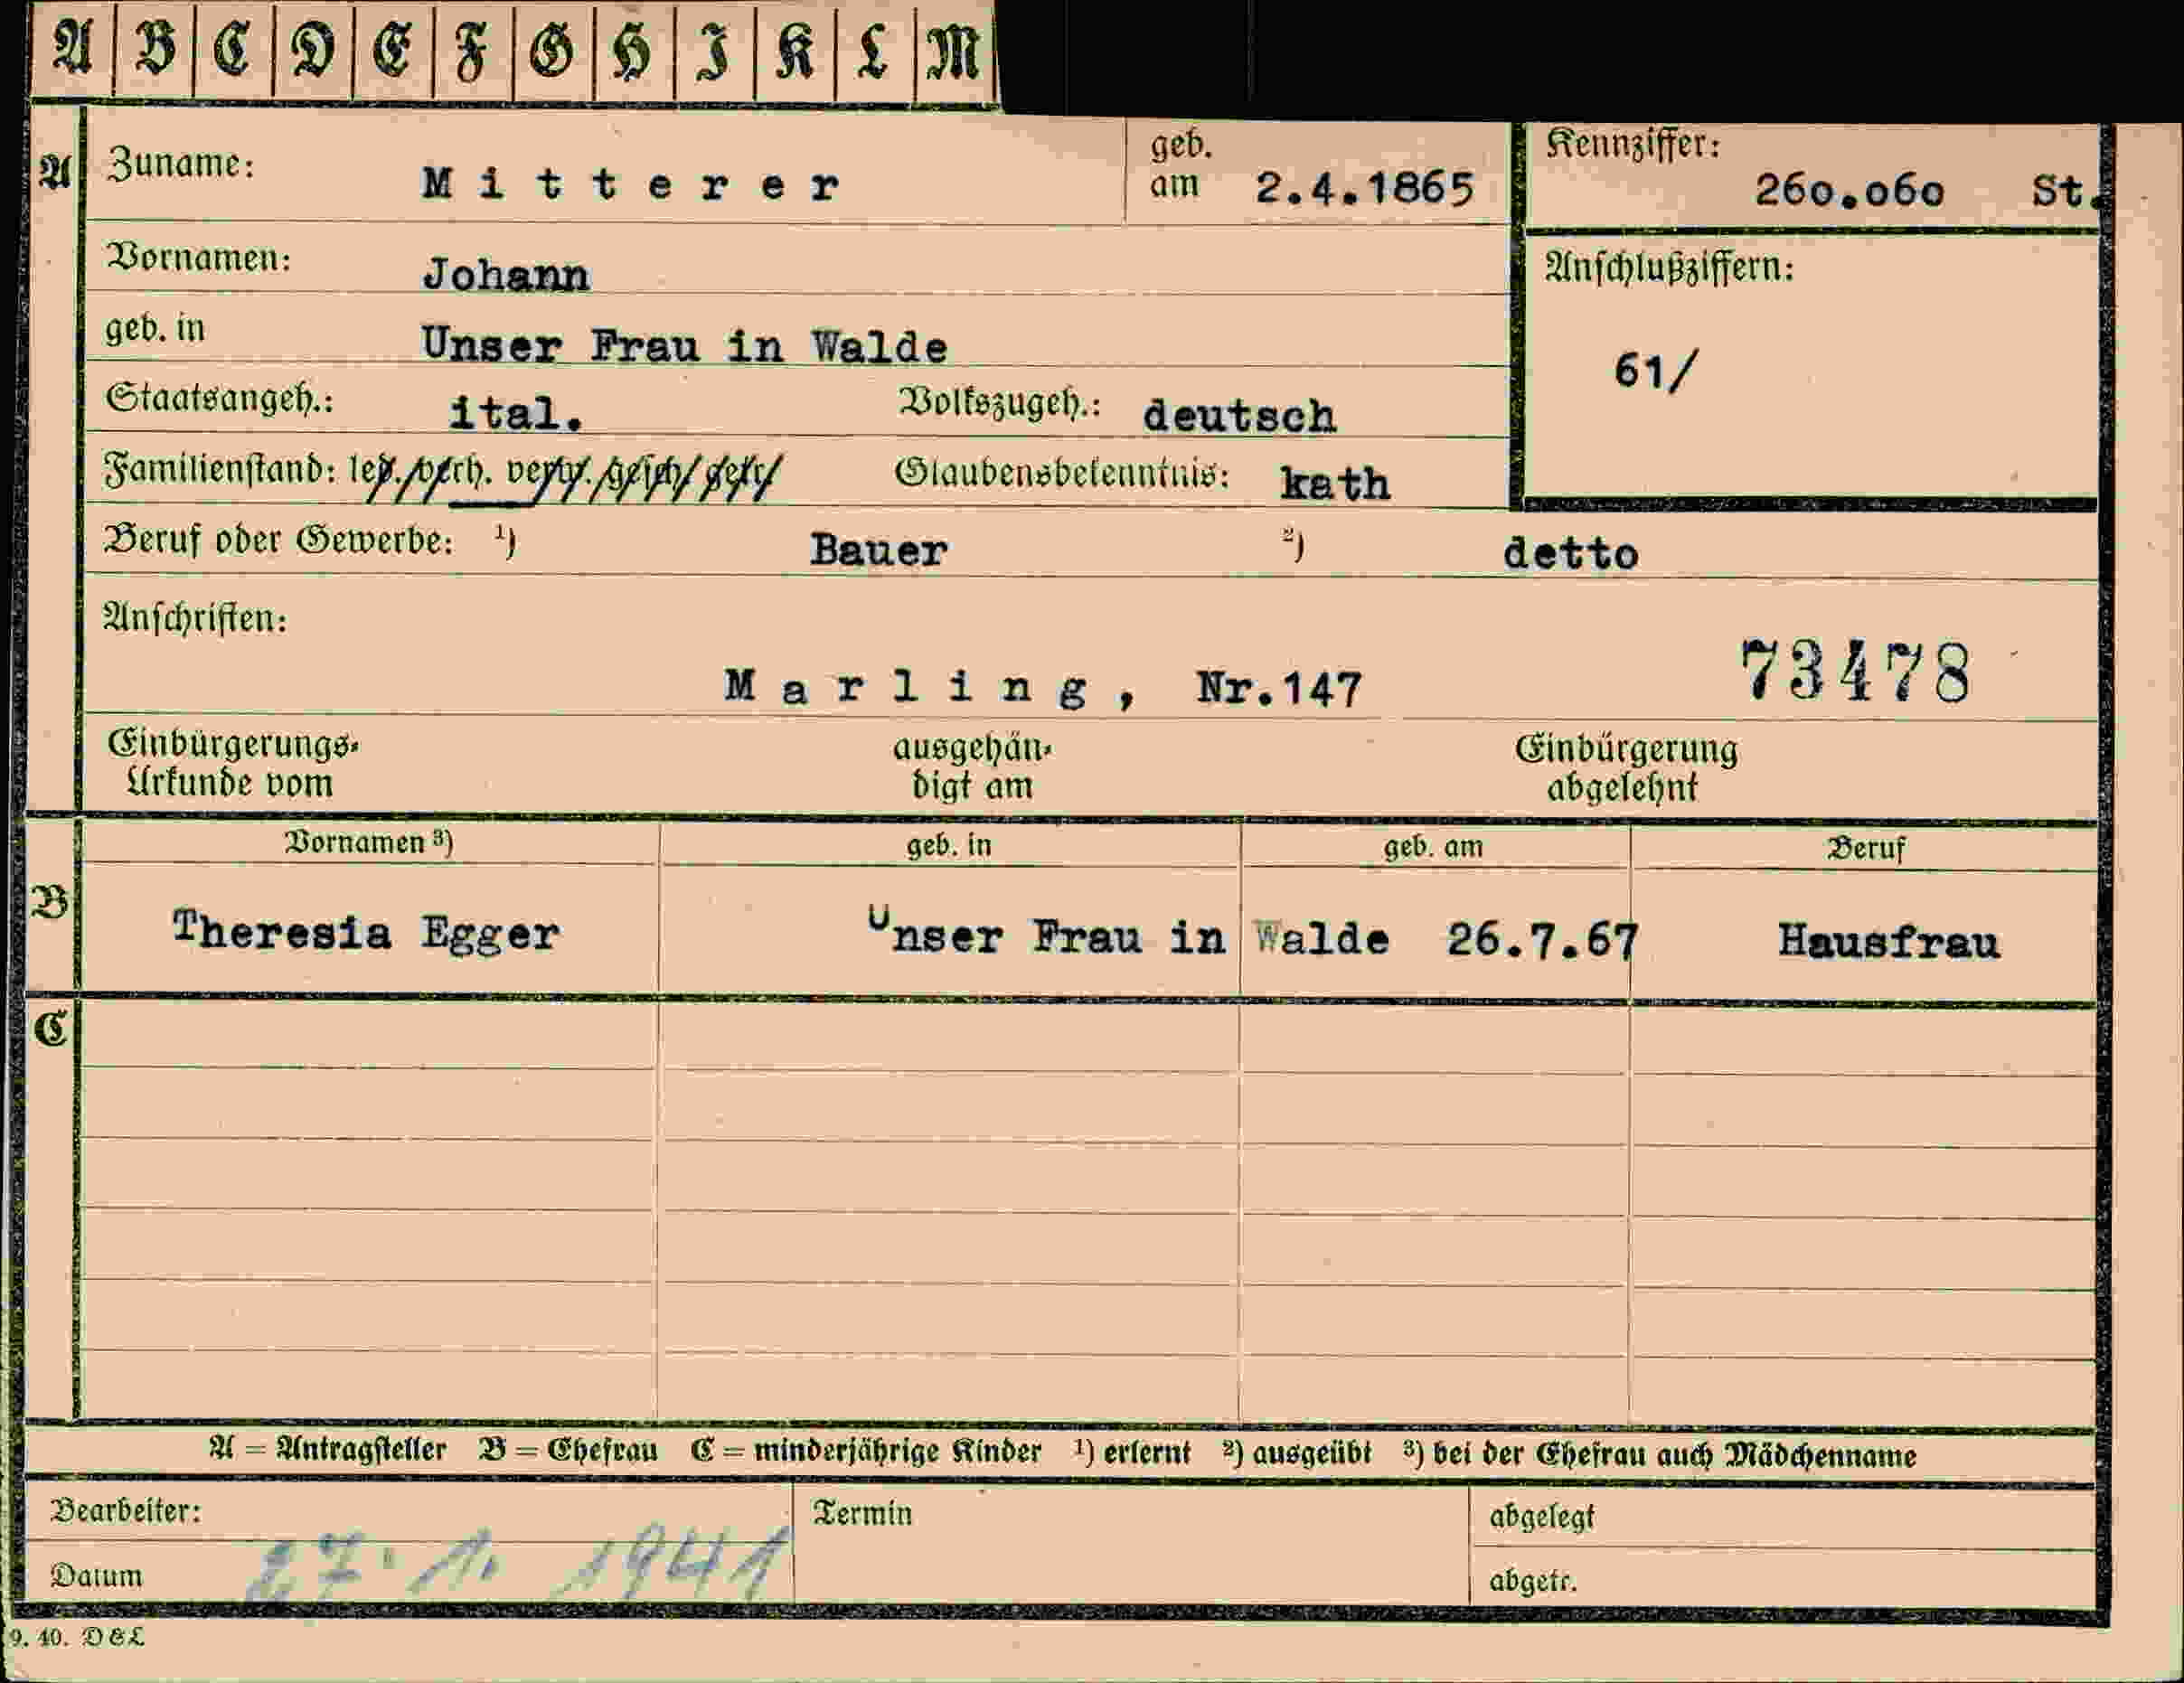 A B C D E F G H I K L M
A Zuname: Mitterer geb. am 2.4.1865 Kennziffer: 260.060 St.
Vornamen: Johann Anschlußziffern:
geb. in Unser Frau in Walde 61/
Staatsangeh.: ital. Volkszugeh.: deutsch
Familienstand: led./verh. verw./gesch/getr/ Glaubensbekenntnis: kath
Beruf oder Gewerbe: 1) Bauer 2) detto
Anschriften:
Marling, Nr.147 73478
Einbürgerungs- ausgehän- Einbürgerung
Urkunde vom digt am abgelehnt
Vornamen 3) geb. in geb. am Beruf
B Theresia Egger Unser Frau in Walde 26.7.67 Hausfrau
C
A = Antragsteller B = Ehefrau C = minderjährige Kinder 1) erlernt 2) ausgeübt 3) bei der Ehefrau auch Mädchenname
Bearbeiter: Termin abgelegt
Datum 27. 1. 1941 abgetr.
9. 40. D&L